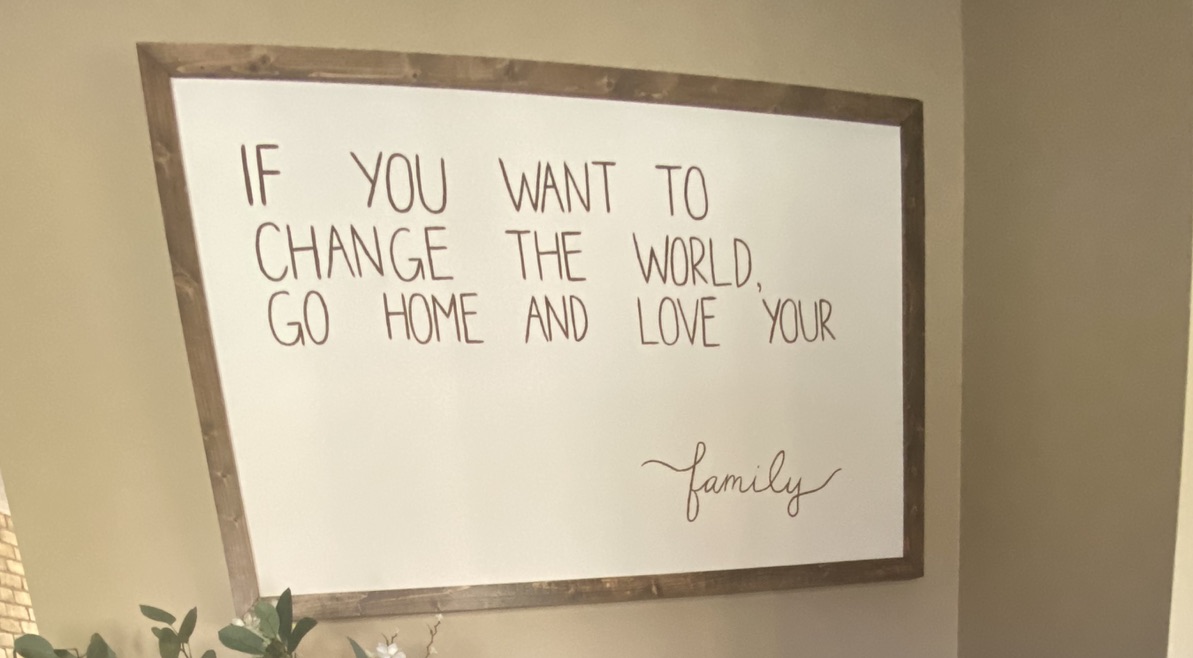 IF YOU WANT TO
CHANGE THE WORLD,
GO HOME AND LOVE YOUR
family